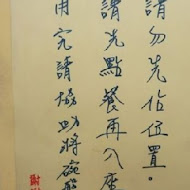 請勿先佔位置。
請先點餐再入座
用完請協助將碗盤
謝謝